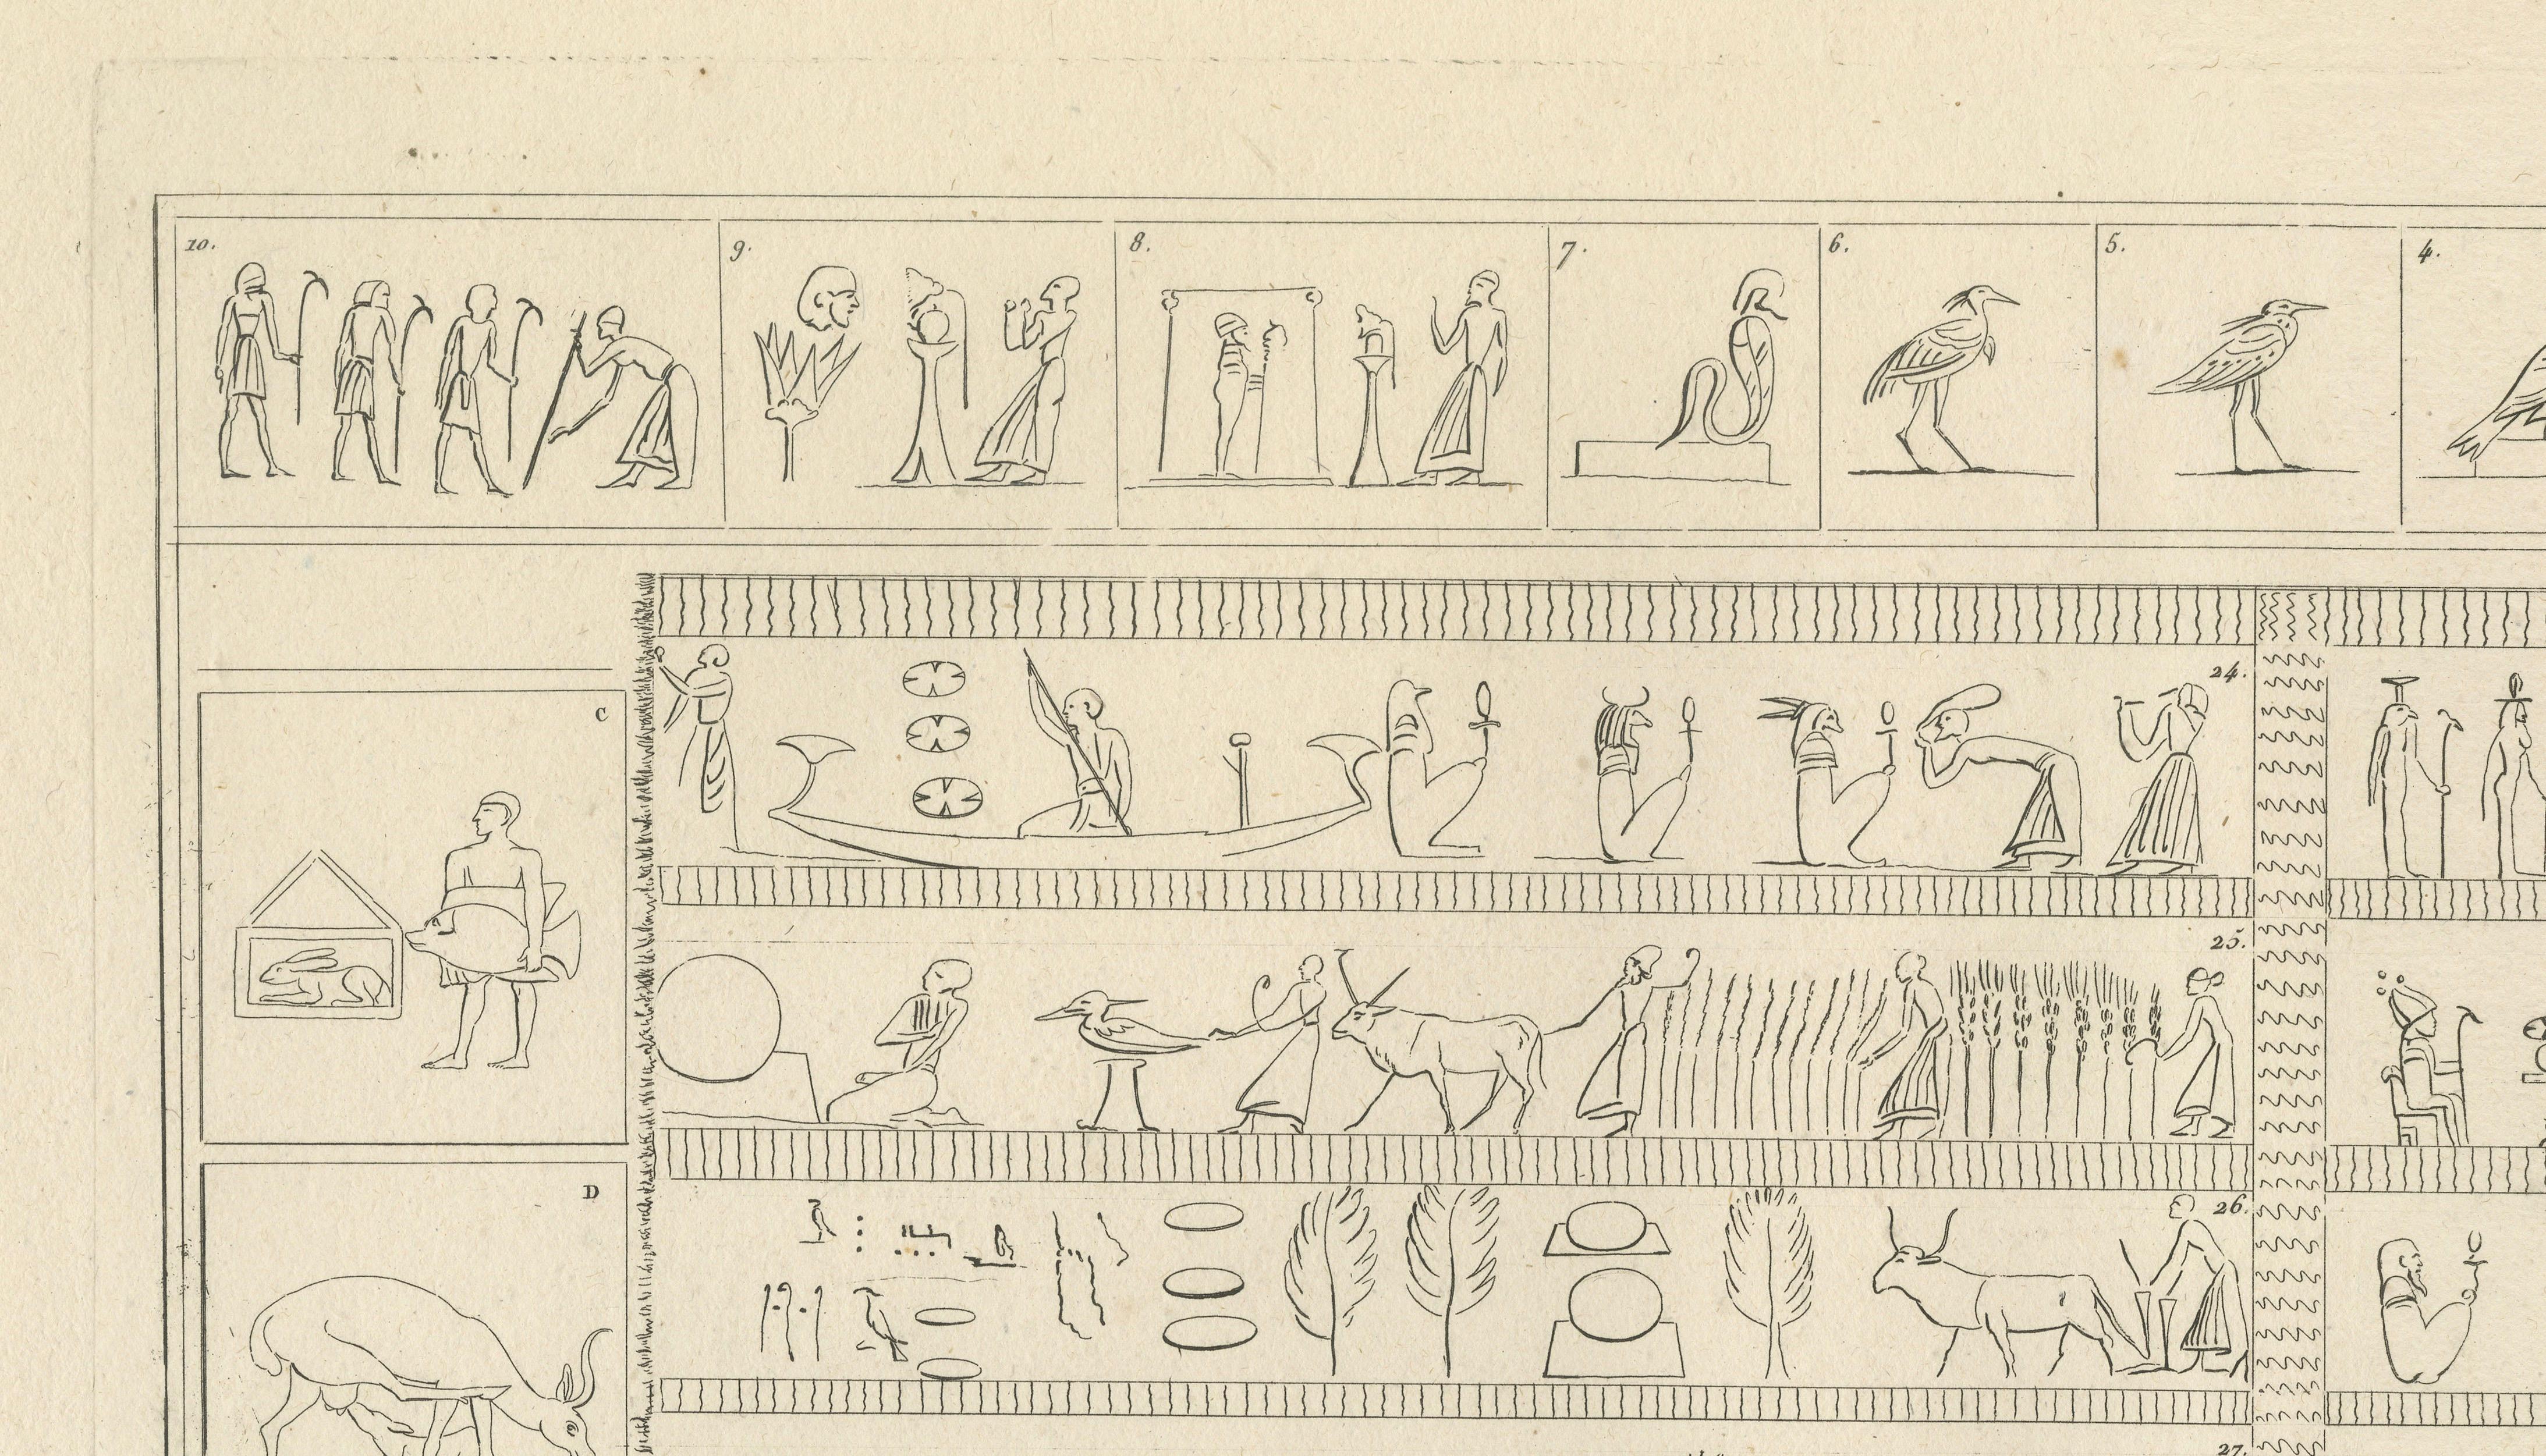 10.
9.
8.
7.
6.
5.
4.
24.
C
25.
D
26.
27.